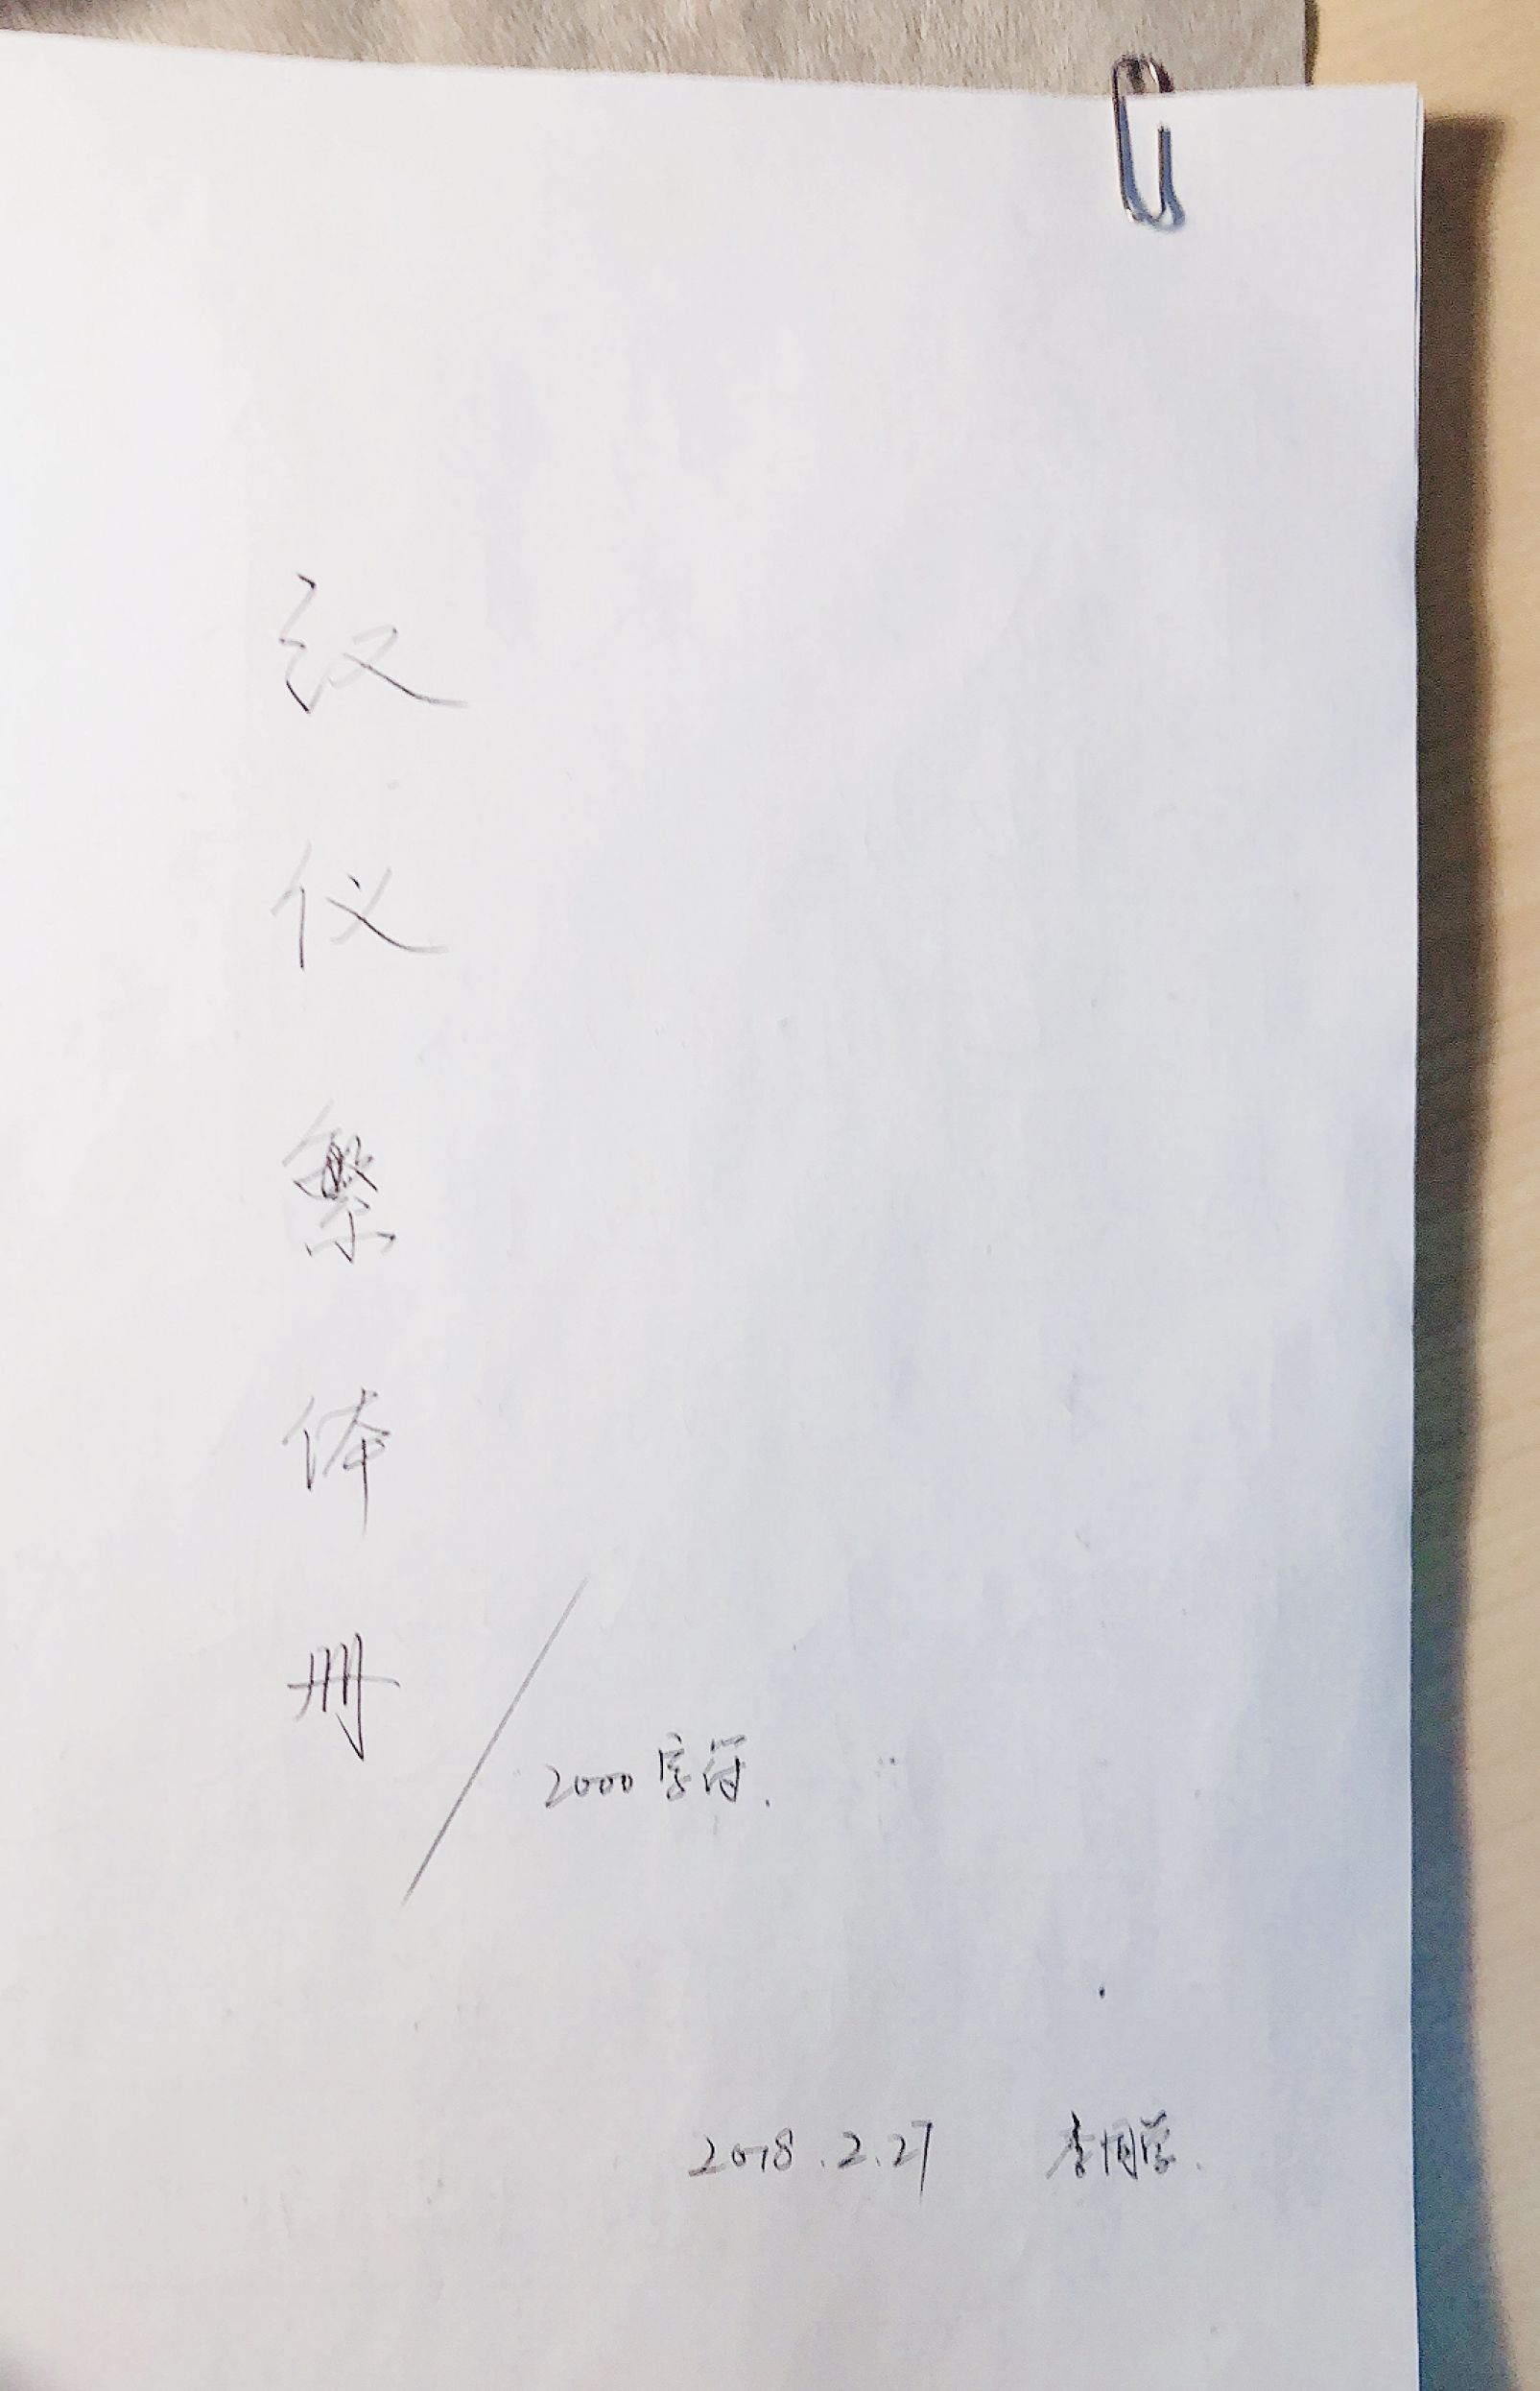 汉仪繁体册
2000字符.
2018.2.27 李同学.